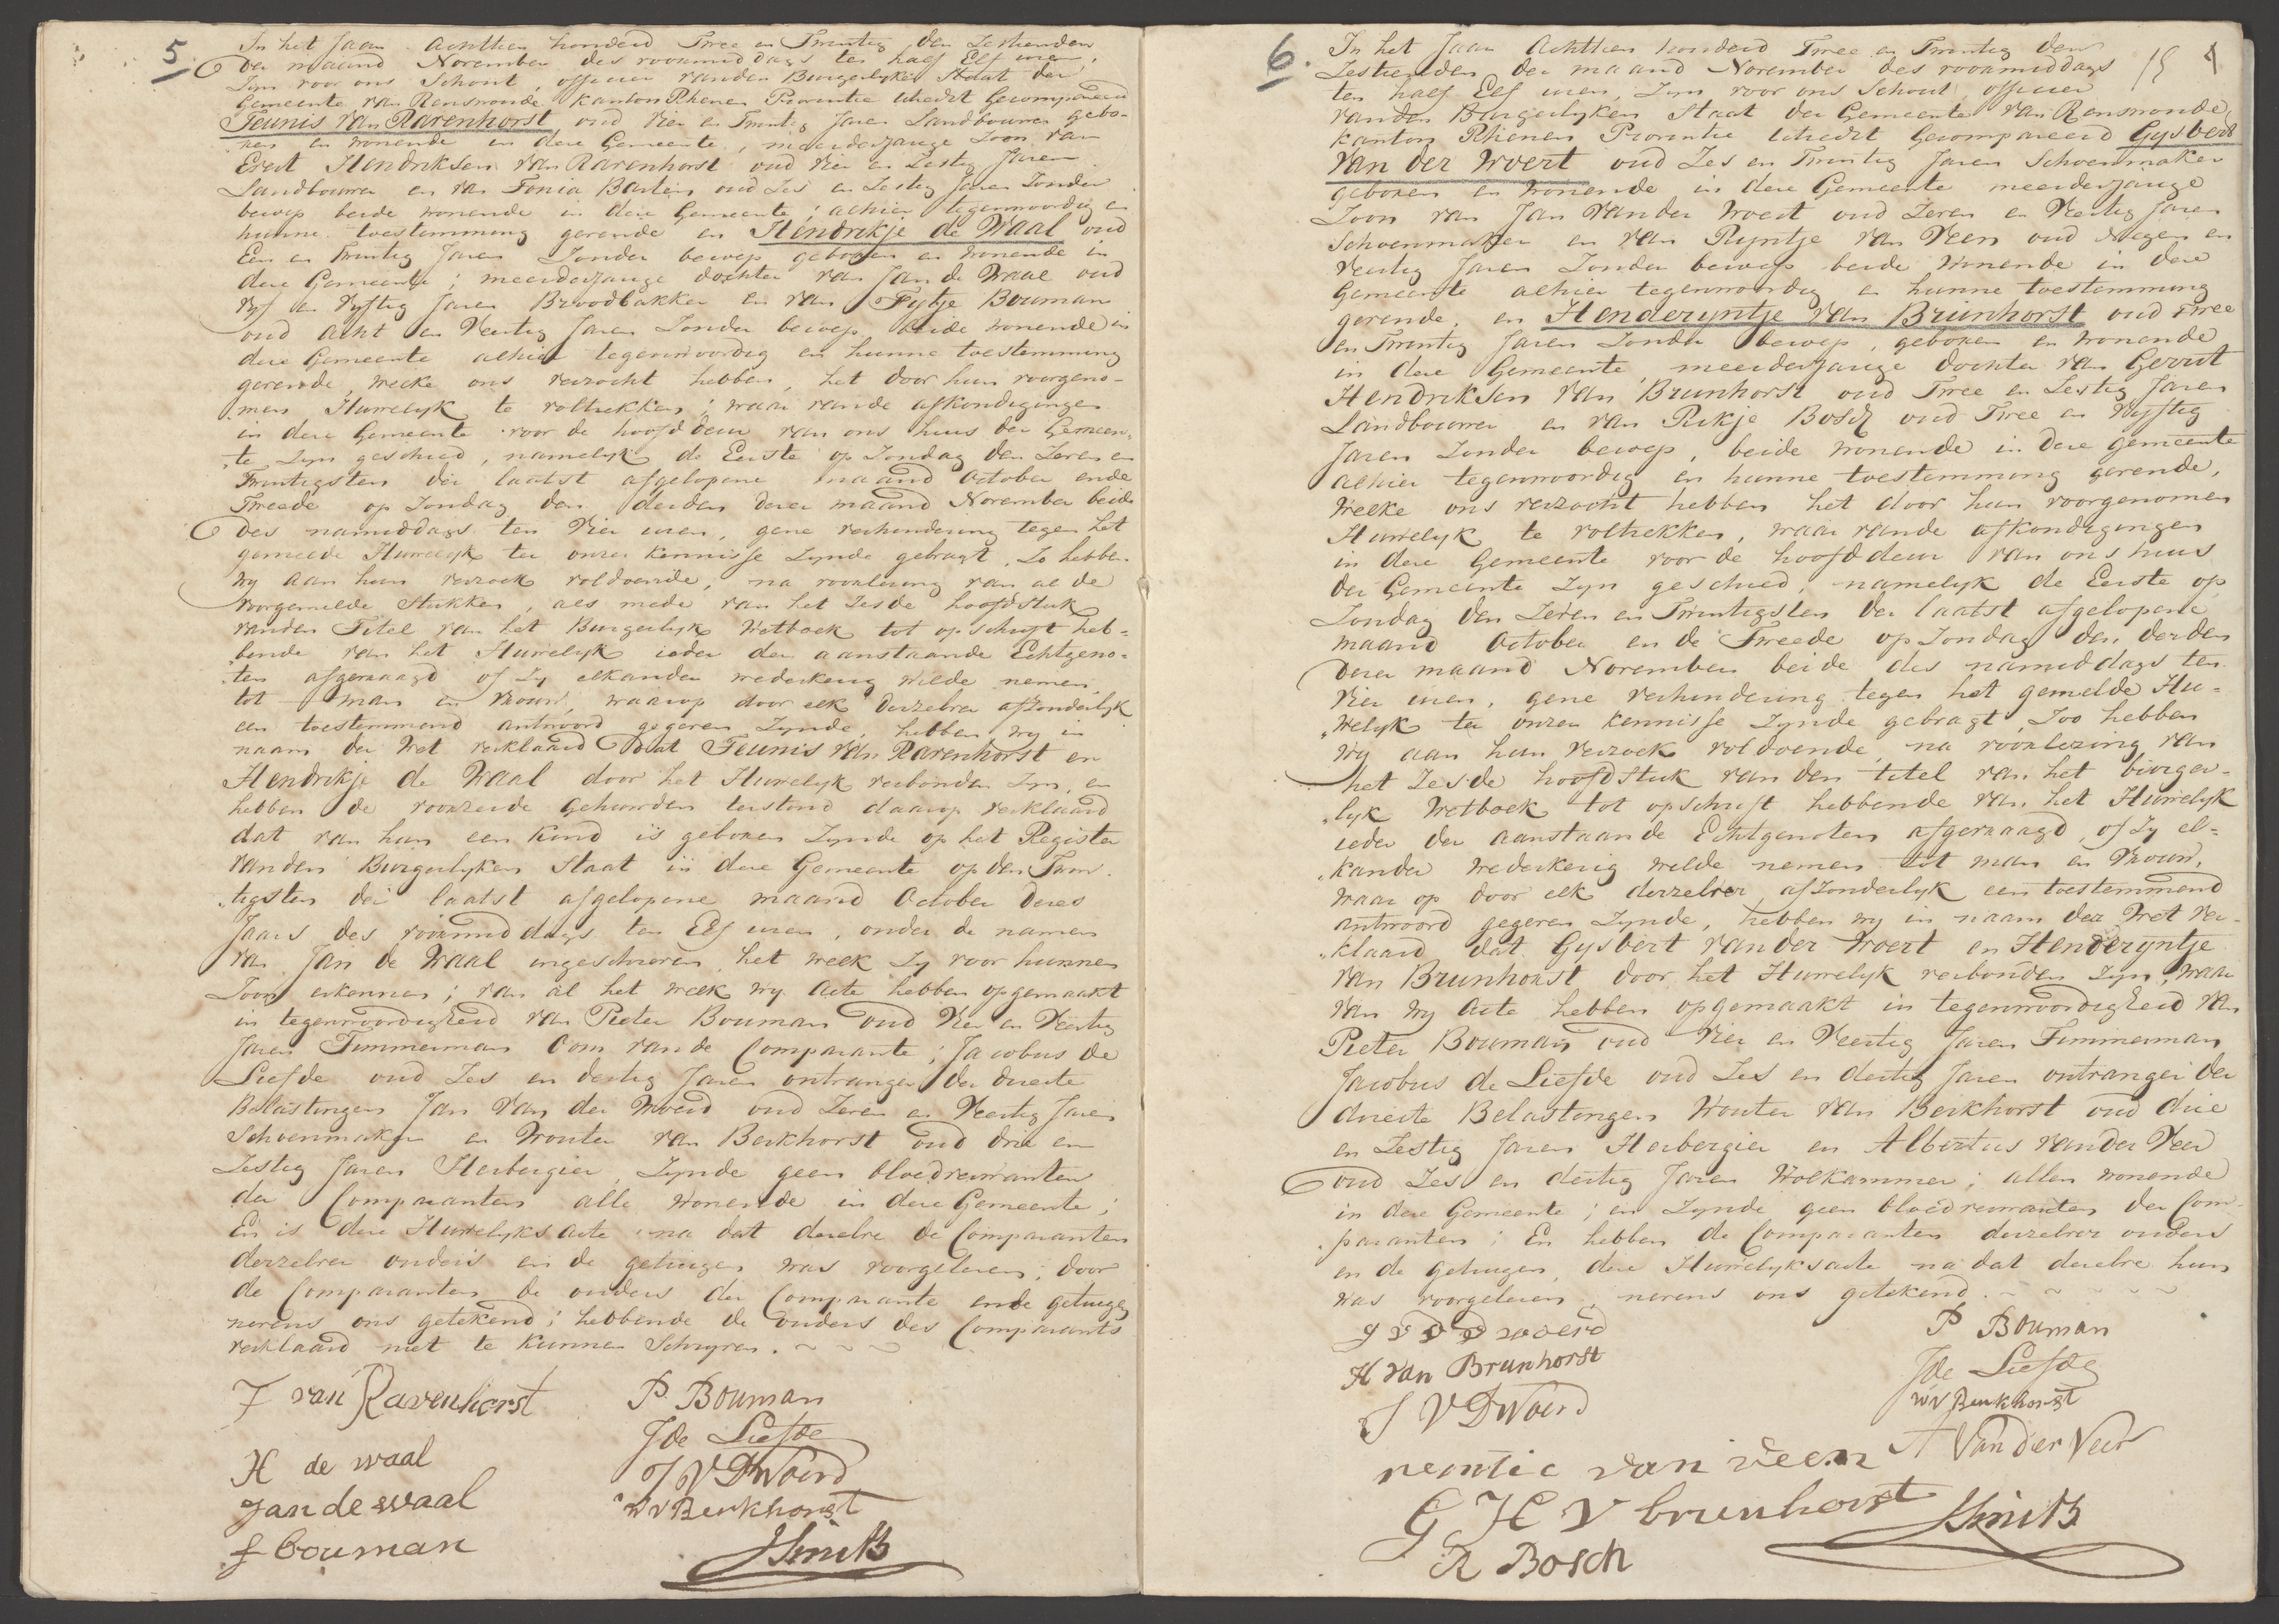 5
In het Jaar Achttien honderd Twee en Twintig den Zestienden
der maand November des voormiddags ten half Elf uren,
Zyn voor ons Schout, officier vanden Burgerlyken Staat der
Gemeente van Renswoude kanton Rhenen Provintie Utrecht Gecompareerd
Teunis van Ravenhorst oud Vier en Twintig Jaren Landbouwer gebo-
ren en wonende in deze Gemeente, meerderjarige Zoon van
Evert Hendriksen van Ravenhorst oud Vier en Zestig Jaren
Landbouwer en van Tonia Barten oud Zes en Zestig Jaren Zonder
beroep beide wonende in deze Gemeente; alhier tegenwoordig en
hunne toestemming gevende en Hendrikje de Waal oud
Een en Twintig Jaren Zonder beroep geboren en wonende in
deze Gemeente; meerderjarige dochter van Jan de Waal oud
Vyf en Vyftig Jaren Broodbakker en van Fytje Bouman
oud Acht en Veertig Jaren Zonder beroep, beide wonende in
deze Gemeente alhier tegenwoordig en hunne toestemming
gevende, welke ons verzocht hebben, het door hun voorgeno-
men Huwelyk te voltrekken; waar vande afkondigingen
in deze Gemeente voor de hoofd deur van ons huis der Gemeen-
te Zyn geschied, namelyk de Eerste op Zondag den Zeven en
Twintigsten der laatst afgelopene maand October ende
Tweede op Zondag den derden dezer maand November beide
des namiddags ten Vier uren, gene verhindering tegen het
gemelde Huwelyk ter onzer kennisse Zynde gebragt, Zo hebben
wy aan hun verzoek voldoende, na voorlezing van al de
voorgemelde Stukken, als mede van het Zesde hoofdstuk
vanden Titel van het Burgerlyk Wetboek tot opschrift heb-
bende van het Huwelyk ieder der aanstaande Echtgeno-
ten afgevraagd of Zy elkander wederkerig wilde nemen
tot man en vrouw, waarop door elk derzelver afzonderlyk
een toestemmend antwoord gegeven Zynde, hebben wy in
naam der Wet verklaard dat Teunis van Ravenhorst en
Hendrikje de Waal door het Huwelyk verbonden Zyn, en
hebben de voorzeide gehuwden terstond daarop verklaard
dat van hun een kind is geboren Zynde op het Register
vanden Burgerlyken Staat in deze Gemeente op den Twin-
tigsten der laatst afgelopene maand October dezes
Jaars des voormiddags ten Elf uren, onder de namen
van Jan de Waal ingeschreven het welk Zy voor hunnen
Zoon erkennen; van al het welk wy Acte hebben opgemaakt
in tegenwoordigheid van Pieter Bouman oud Vier en Veertig
Jaren Timmerman Oom van de Comparante; Jacobus de
Liefde oud Zes en dertig Jaren ontvanger der directe
Belastingen Jan van der Woerd oud Zeven en Veertig Jaren
Schoenmaker en Wouter van Berkhorst oud drie en
Zestig Jaren Herbergier, Zynde geen bloedverwanten
der Comparanten alle wonende in deze Gemeente;
En is deze Huwelyks acte na dat dezelve de Comparanten
derzelver ouders en de getuigen was voorgelezen; door
de Comparanten de ouders der Comparante ende getuigen
nevens ons getekend; hebbende de ouders des Comparants
verklaard niet te kunnen Schryven.
T van Ravenhorst
P. Bouman
J de Liefde
H de waal
J V D Woerd
Jan de waal
W V Berkhorst
f bouman
J Smith
6.
In het Jaar Achttien honderd Twee en Twintig den
Zestienden der maand November des voormiddags
ten half Elf uren, Zyn voor ons Schout, officier
vanden Burgerlyken Staat der Gemeente van Renswoude
kanton Rhenen Provintie Utrecht Gecompareerd Gysbert
van der Woert oud Zes en Twintig Jaren Schoenmaker
geboren en wonende in deze Gemeente meerderjarige
Zoon van Jan van der Woert oud Zeven en Veertig Jaren
Schoenmaker en van Ryntje van Veen oud Negen en
Veertig Jaren Zonder beroep beide wonende in deze
Gemeente alhier tegenwoordig en hunne toestemming
gevende, en Henderyntje van Brunhorst oud Twee
en Twintig Jaren Zonder beroep, geboren en wonende
in deze Gemeente, meerderjarige dochter van Gerrit
Hendriksen van Brunhorst oud Twee en Zestig Jaren
Landbouwer en van Rikje Bosch oud Twee en Vyftig
Jaren Zonder beroep, beide wonende in deze gemeente
alhier tegenwoordig en hunne toestemming gevende,
Welke ons verzocht hebben het door hun voorgenomen
Huwelyk te voltrekken, waar vande afkondigingen
in deze Gemeente voor de hoofd deur van ons huis
der Gemeente Zyn geschied, namelyk de Eerste op
Zondag den Zeven en Twintigsten der laatst afgelopene
maand October en de Tweede op Zondag den derden
dezer maand November beide des namiddags ten
Vier uren, gene verhindering tegen het gemelde Hu-
welyk ter onzer kennisse Zynde gebragt, Zoo hebben
wy aan hun verzoek voldoende, na voorlezing van
het Zesde hoofdstuk van den titel van het burger-
lyk Wetboek tot opschrift hebbende van het Huwelyk
ieder der aanstaande Echtgenoten afgevraagd, of Zy el-
kander wederkerig wilde nemen tot man en Vrouw,
waar op door elk derzelver afzonderlyk een toestemmend
antwoord gegeven Zynde, hebben wy in naam der Wet ver-
klaard dat Gysbert van der Woert en Henderyntje
van Brunhorst door het Huwelyk verbonden Zyn, waar
van wy Acte hebben opgemaakt in tegenwoordigheid van
Pieter Bouman oud Vier en Veertig Jaren Timmerman
Jacobus de Liefde oud Zes en dertig Jaren ontvanger der
directe Belastingen Wouter van Berkhorst oud drie
en Zestig Jaren Herbergier en Albertus van der Veer
oud Zes en dertig Jaren Wolkammer; allen wonende
in deze Gemeente; en Zynde geen bloedverwanten der Com-
paranten; En hebben de Comparanten derzelver ouders
en de getuigen, deze Huwelyksacte na dat dezelve hun
was voorgelezen, nevens ons getekend.
P Bouman
H van Brunhorst
J de Liefde
J V D Woerd
W V Berkhorst
A Van der Veer
reintie van veen
G H V brunhorst
J Smith
R Bosch